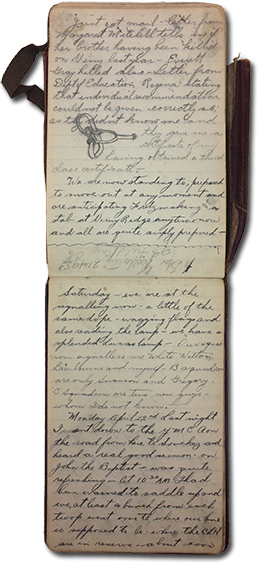 Just got mail - letter from
Margaret Mitchell tells me of
her brother having been killed
on Vimy last year - Everett
Gray killed also - Letter from
Dept of Education Regina stating
that individual recommendation
could not be given correctly as
they didn't know me and
they gave me a
certificate of my
having obtained a third
class certificate -
We are now standing to, prepared
to move out at any moment and
are anticipating Fritz making a
stab at Vimy Ridge anytime now
and all are quite amply prepared -
Saturday - we are at the
signalling now - a little of the
same dope - wagging flags and
also reading the lamp - we have a
splendid lamp - Our squad
now signallers are White, Wilton
and myself. B squadron
are only Swanson and Gregory
C Squadron are two new guys -
whom I do not know.
Monday April 22nd last night
I went down to the Y M C A on
the road from here to Souchez and
heard a real good sermon - on
John the Baptist - was quite
refreshing - At 10 AM I had
been warned to saddle up and
we, at least a bunch from each
troop went over to where our line
is supposed to be where the CLH
are in reserve - about